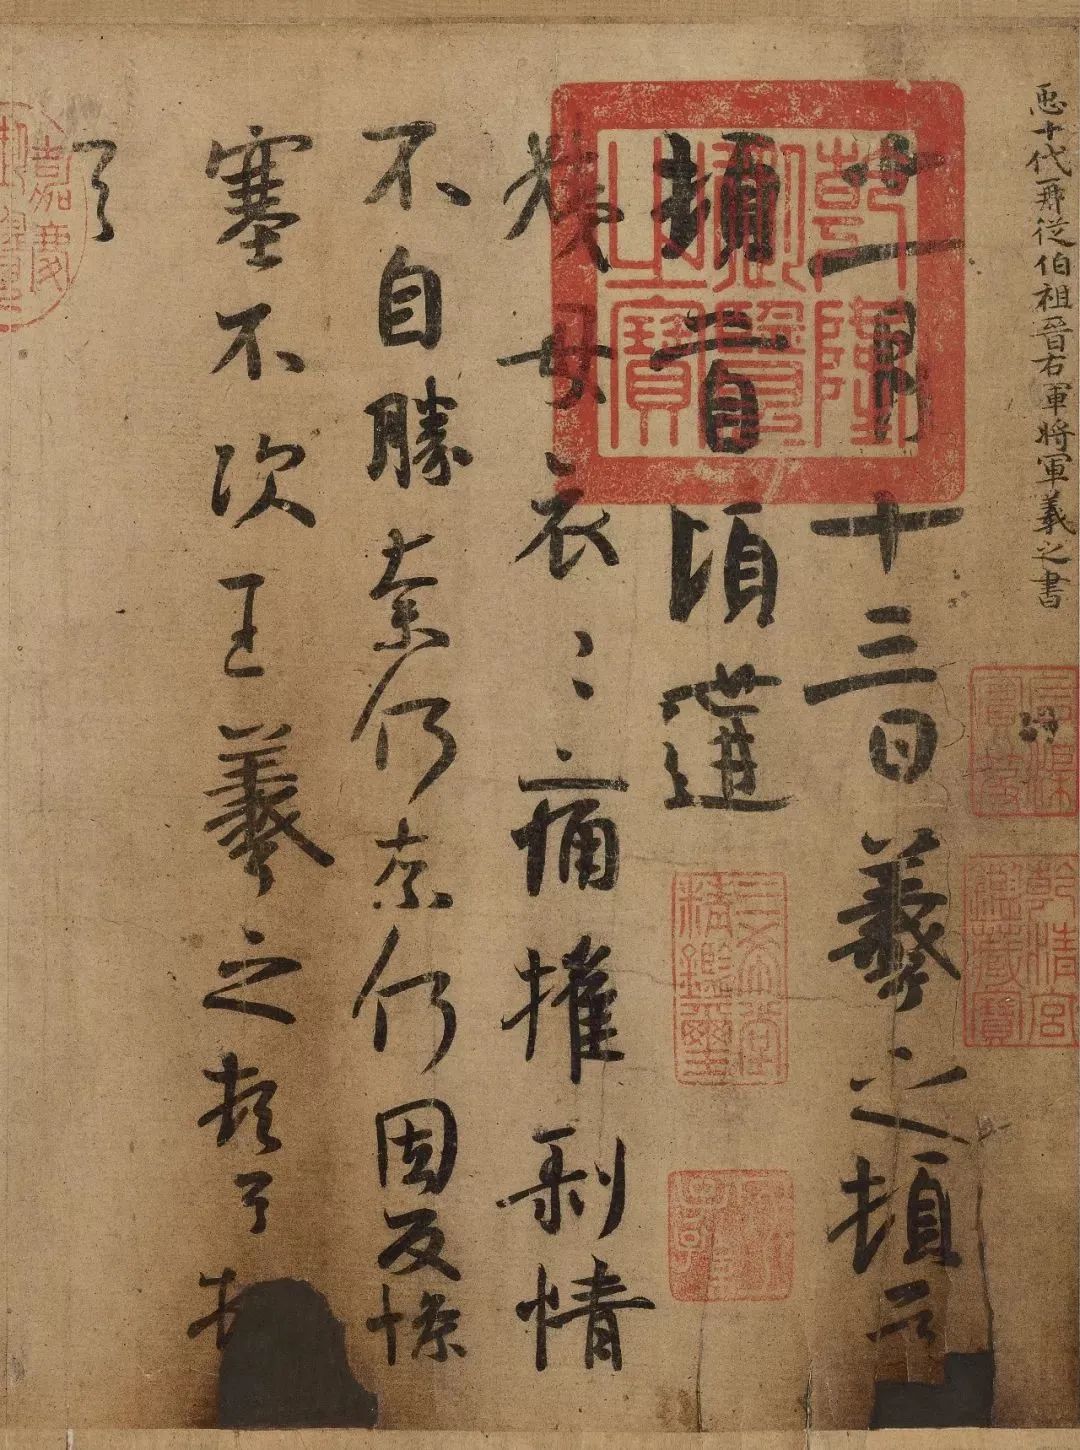 𢘑十代再從伯祖晉右軍將軍羲之書
十一月十三日羲之頓首
頓首頃遘
姨母哀〻痛摧剝情
不自勝奈何奈何因反慘
塞不次王羲之頓首頓
首
乾隆御覽之寶
乾清宮鑑藏寶
三希堂精鑑璽
嘉慶御覽